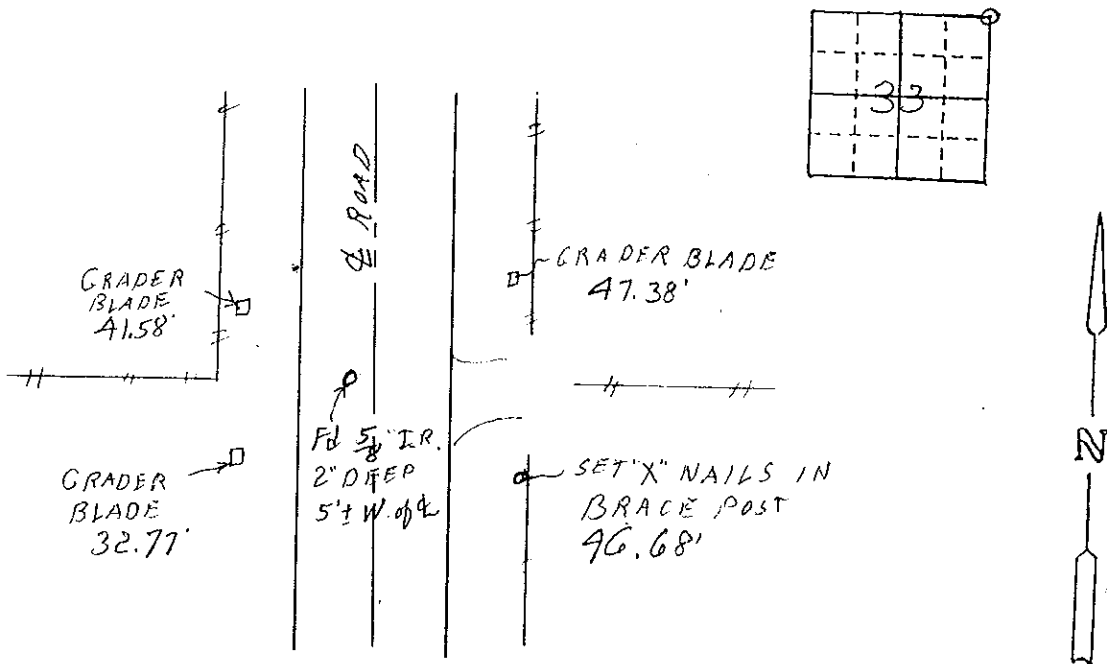 33
℄ ROAD
GRADER
BLADE
41.58'
GRADER BLADE
47.38'
Fd 5/8" I.R.
2" DEEP
5'± W. of ℄
GRADER
BLADE
32.77'
SET "X" NAILS IN
BRACE POST
46.68'
N